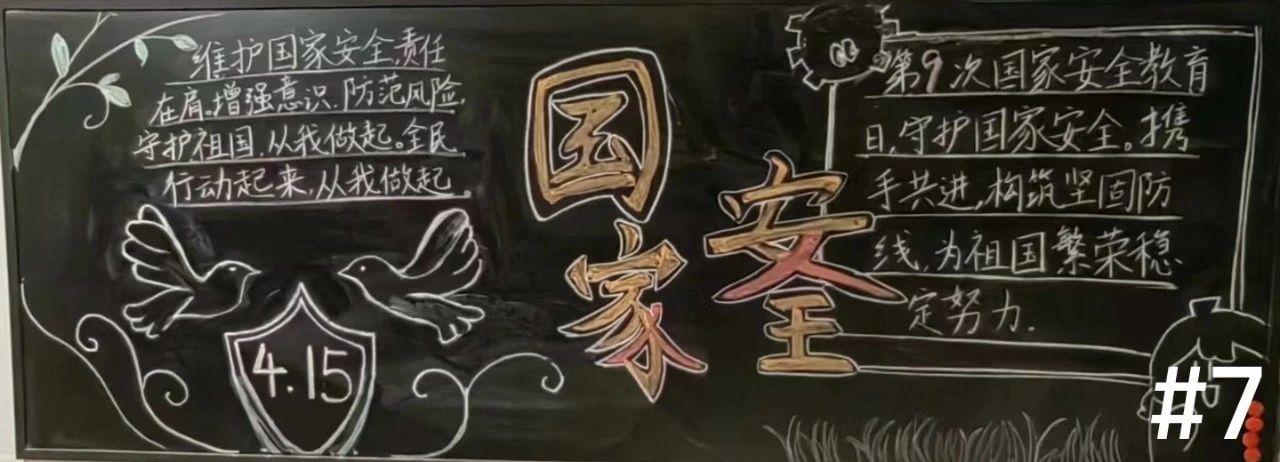 维护国家安全,责任
在肩。增强意识、防范风险,
守护祖国,从我做起。全民
行动起来,从我做起。
4.15
国家
安全
第9次国家安全教育
日,守护国家安全。携
手共进,构筑坚固防
线,为祖国繁荣稳
定努力.
#7